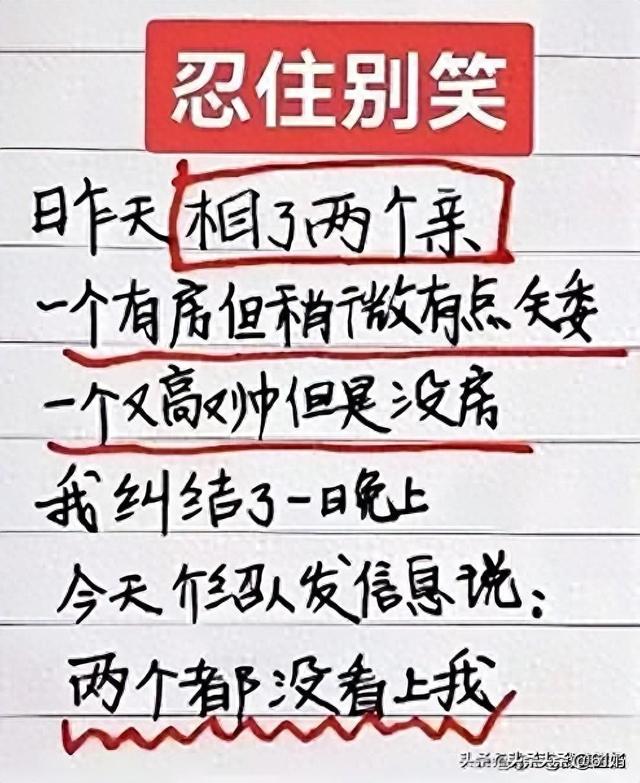 忍住别笑
昨天相了两个亲
一个有房但稍微有点矮
一个又高又帅但是没房
我纠结了一晚上
今天介绍人发信息说：
两个都没看上我